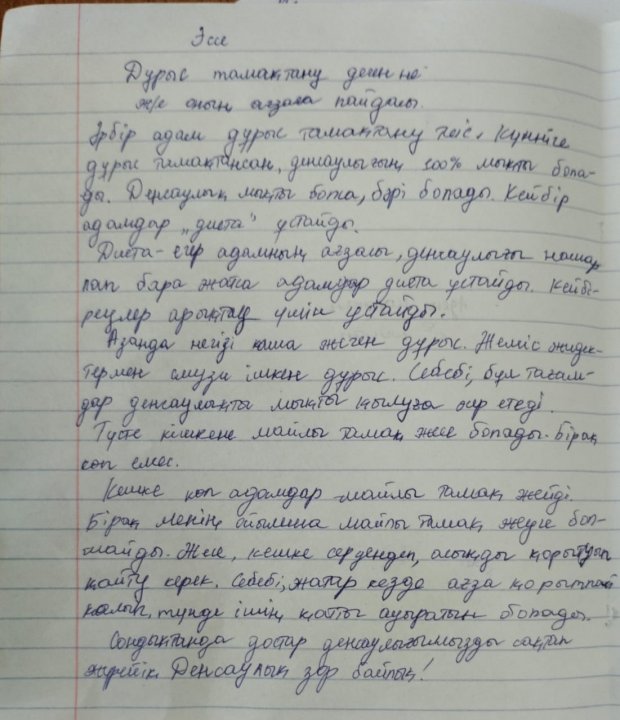 Эссе
Дұрыс тамақтану деген не
және оның ағзаға пайдасы.
Әрбір адам дұрыс тамақтану тиіс. Күнніге
дұрыс тамақтансаң, денсаулығың 100% мықты бола-
ды. Денсаулық мықты болса, бәрі болады. Кейбір
адамдар "диета" ұстайды.
Диета - егер адамның ағзасы, денсаулығы нашар
лап бара жатса адамдар диета ұстайды. Кейбі-
реулер арықтау үшін ұстайды.
Азанда негізі каша жеген дұрыс. Жеміс жидек-
термен смузи ішкен дұрыс. Себебі, бұл тағам-
дар денсаулықты мықты қылуға әсер етеді.
Түсте кішкене майлы тамақ жесе болады. Бірақ
көп емес.
Кешке көп адамдар майлы тамақ жейді.
Бірақ менің ойымша майлы тамақ жеуге бол-
майды. Жесе, кешке серуендеп, асыңды қорытып
қайту керек. Себебі, жатар кезде ағза қорытпай
қалып, түнде ішің қатты ауыратын болады.
Сондықтанда достар денсаулығымызды сақтап
жүрейік. Денсаулық зор байлық!